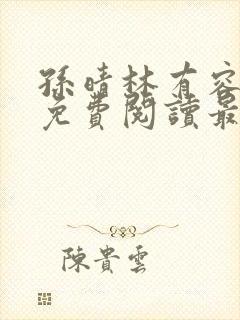 孫晴林有容
免費閱讀最
陳貴雲